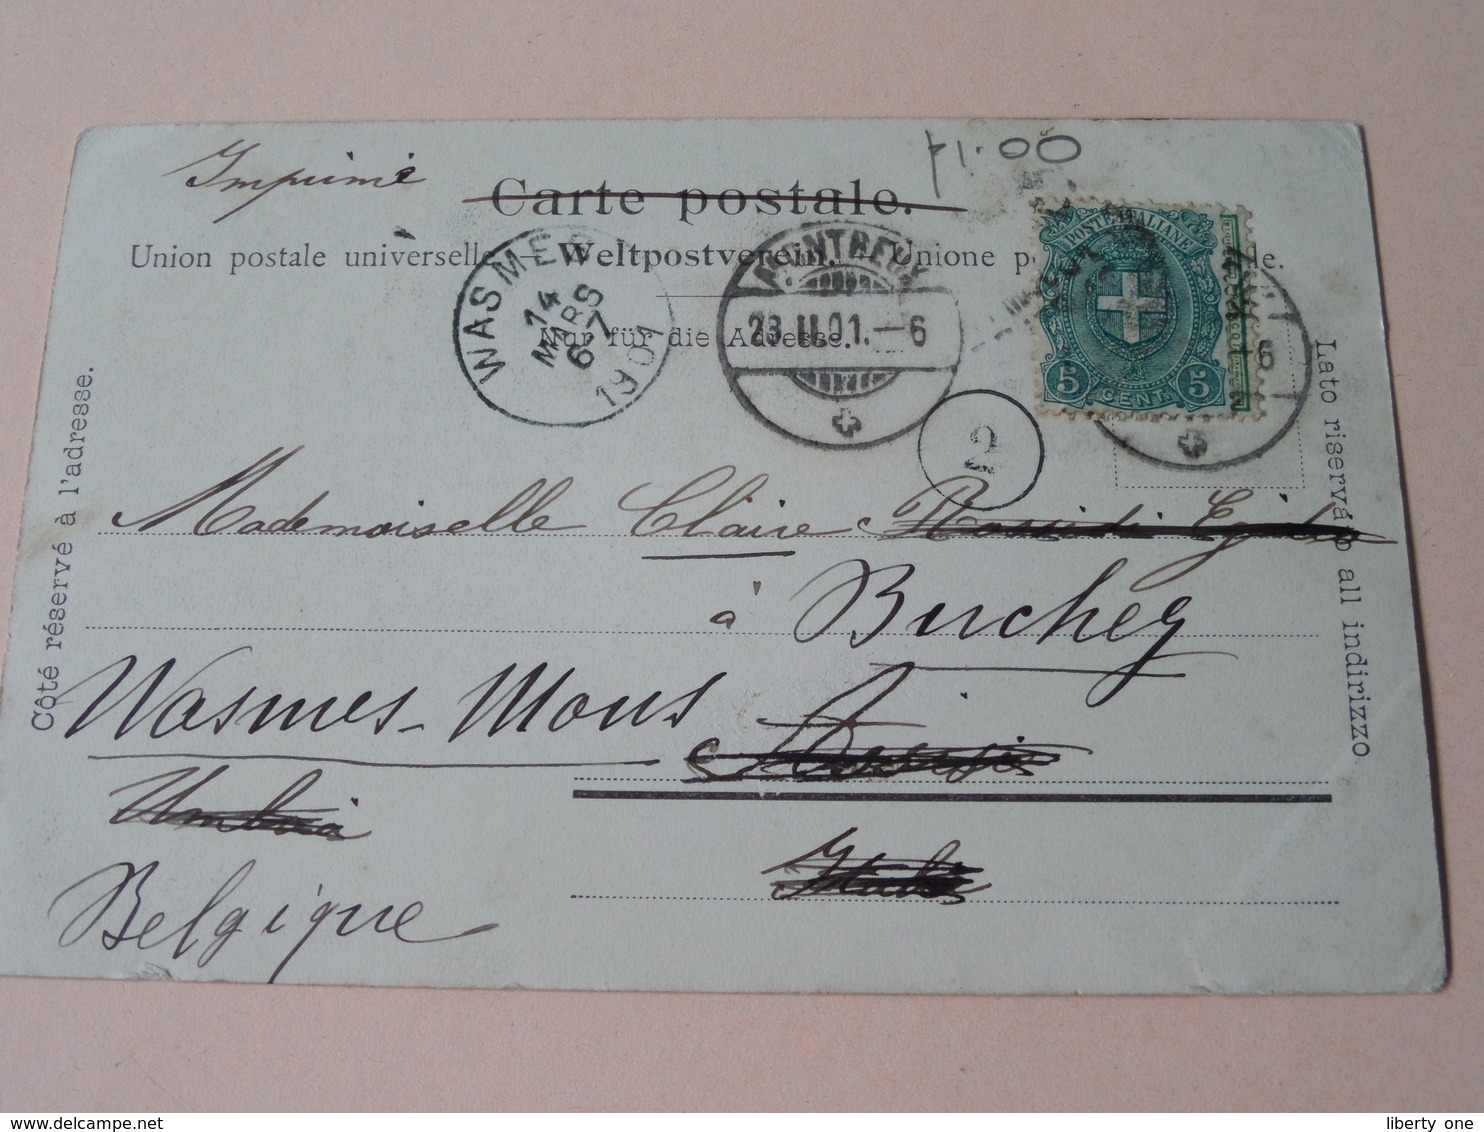 Imprimé
71.00
Carte postale.
Union postale universelle. — Weltpostverein. — Unione p le.
Nur für die Adresse.
WASMES
14
MARS
6-7
1901
MONTREUX
23.II.01.—6
6
2
POSTE ITALIANE
5 CENT. 5
Côté réservé à l'adresse.
Lato riservato all indirizzo.
Mademoiselle Claire
à Bucheg
Wasmes-Mons
Assisi
Umbria
Italie
Belgique
liberty one